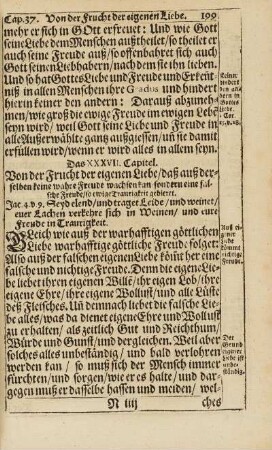 Cap.37. Von der Frucht der eigenen Liebe. 199
mehr er sich in GOtt erfreuet: Und wie Gott
seine Liebe dem Menschen außtheilet/ so theilet er
auch seine Freude auß/ so offenbahret sich auch
Gott seinen Liebhabern/ nach dem sie ihn lieben.
Und so hat Gottes Liebe und Freude und Erkent
niß in allen Menschen ihre Grados und hindert
hierin keiner den andern: Darauß abzuneh-
men/ wie groß die ewige Freude im ewigen Lebē
seyn wird/ weil Gott seine Liebe und Freude in
alle Außerwählte gantz außgiessen/ uñ sie damit
erfüllen wird/ wenn er wird alles in allem seyn.
Das XXXVII. Capitel.
Von der Frucht der eigenen Liebe/ daß auß der-
selben keine wahre Freude wachsen kan sondern eine fal-
sche Freude/ so ewige Traurigkeit gebieret.
Jac. 4. v. 9. Seyd elend/ und traget Leide/ und weinet/
euer Lachen verkehre sich in Weinen/ und eure
Freude in Traurigkeit.
Gleich wie auß der warhafftigen göttlichen
Liebe warhafftige göttliche Freude folget:
Also auß der falschen eigenen Liebe kömt her eine
falsche und nichtige Freude. Denn die eigene Lie-
be liebet ihren eigenen Willē/ ihr eigen Lob/ ihre
eigene Ehre/ ihre eigene Wollust/ und alle Lüste
deß Fleisches. Uñ demnach liebet die falsche Lie-
be alles/ was da dienet eigene Ehre und Wollust
zu erhalten/ als zeitlich Gut und Reichthum/
Würde und Gunst/ und dergleichen. Weil aber
solches alles unbeständig/ und bald verlohren
werden kan/ so muß sich der Mensch immer
fürchten/ und sorgen/ wie er es halte/ und dar-
gegen muß er dasselbe hassen und meiden/ wel-
N iiij ches
Keiner
hindert
den an-
dern in
Gottes
Liebe.
1. Cor.
15. v. 28.
Auß ei-
gener
Liebe
kömmt
nichtige
Freude.
Der
Grund
eigener
Liebe ist
unbe-
ständig.